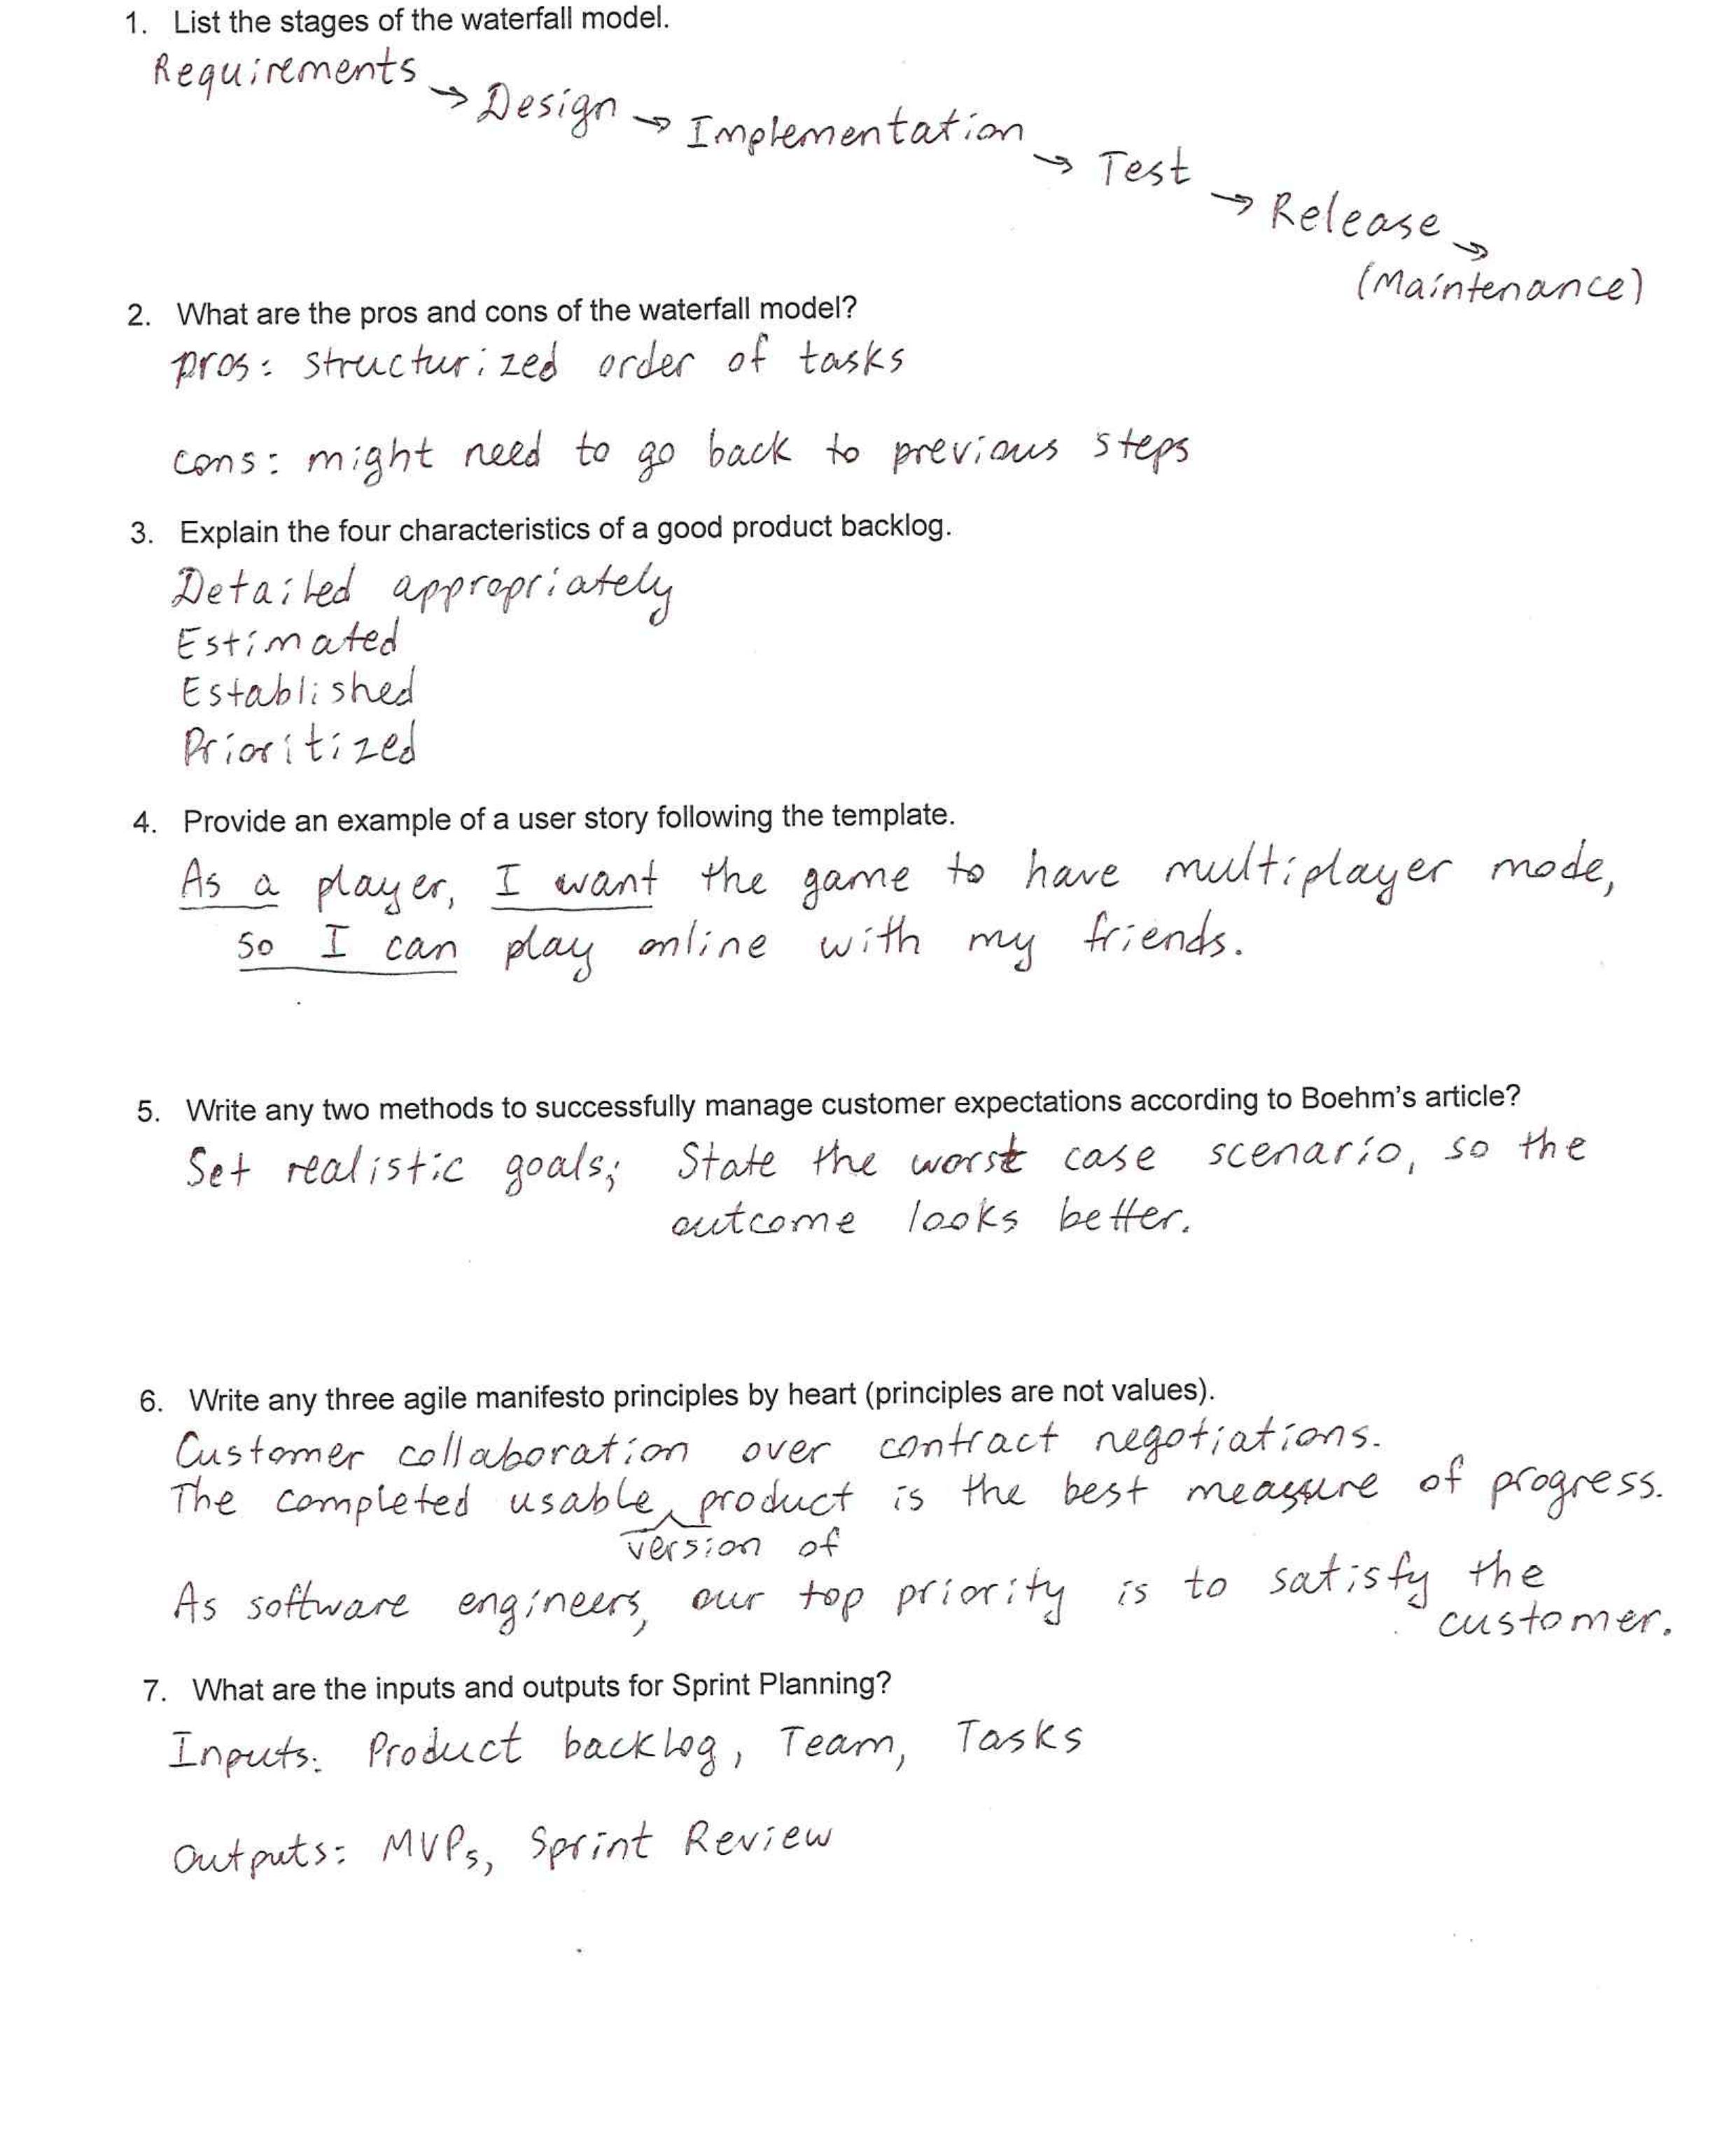 1. List the stages of the waterfall model.
Requirements → Design → Implementation → Test → Release →
(Maintenance)
2. What are the pros and cons of the waterfall model?
pros: structurized order of tasks
cons: might need to go back to previous steps
3. Explain the four characteristics of a good product backlog.
Detailed appropriately
Estimated
Established
Prioritized
4. Provide an example of a user story following the template.
As a player, I want the game to have multiplayer mode,
so I can play online with my friends.
5. Write any two methods to successfully manage customer expectations according to Boehm's article?
Set realistic goals; State the worst case scenario, so the
outcome looks better.
6. Write any three agile manifesto principles by heart (principles are not values).
Customer collaboration over contract negotiations.
The completed usable product is the best measure of progress.
version of
As software engineers, our top priority is to satisfy the
customer.
7. What are the inputs and outputs for Sprint Planning?
Inputs: Product backlog, Team, Tasks
Outputs: MVPs, Sprint Review